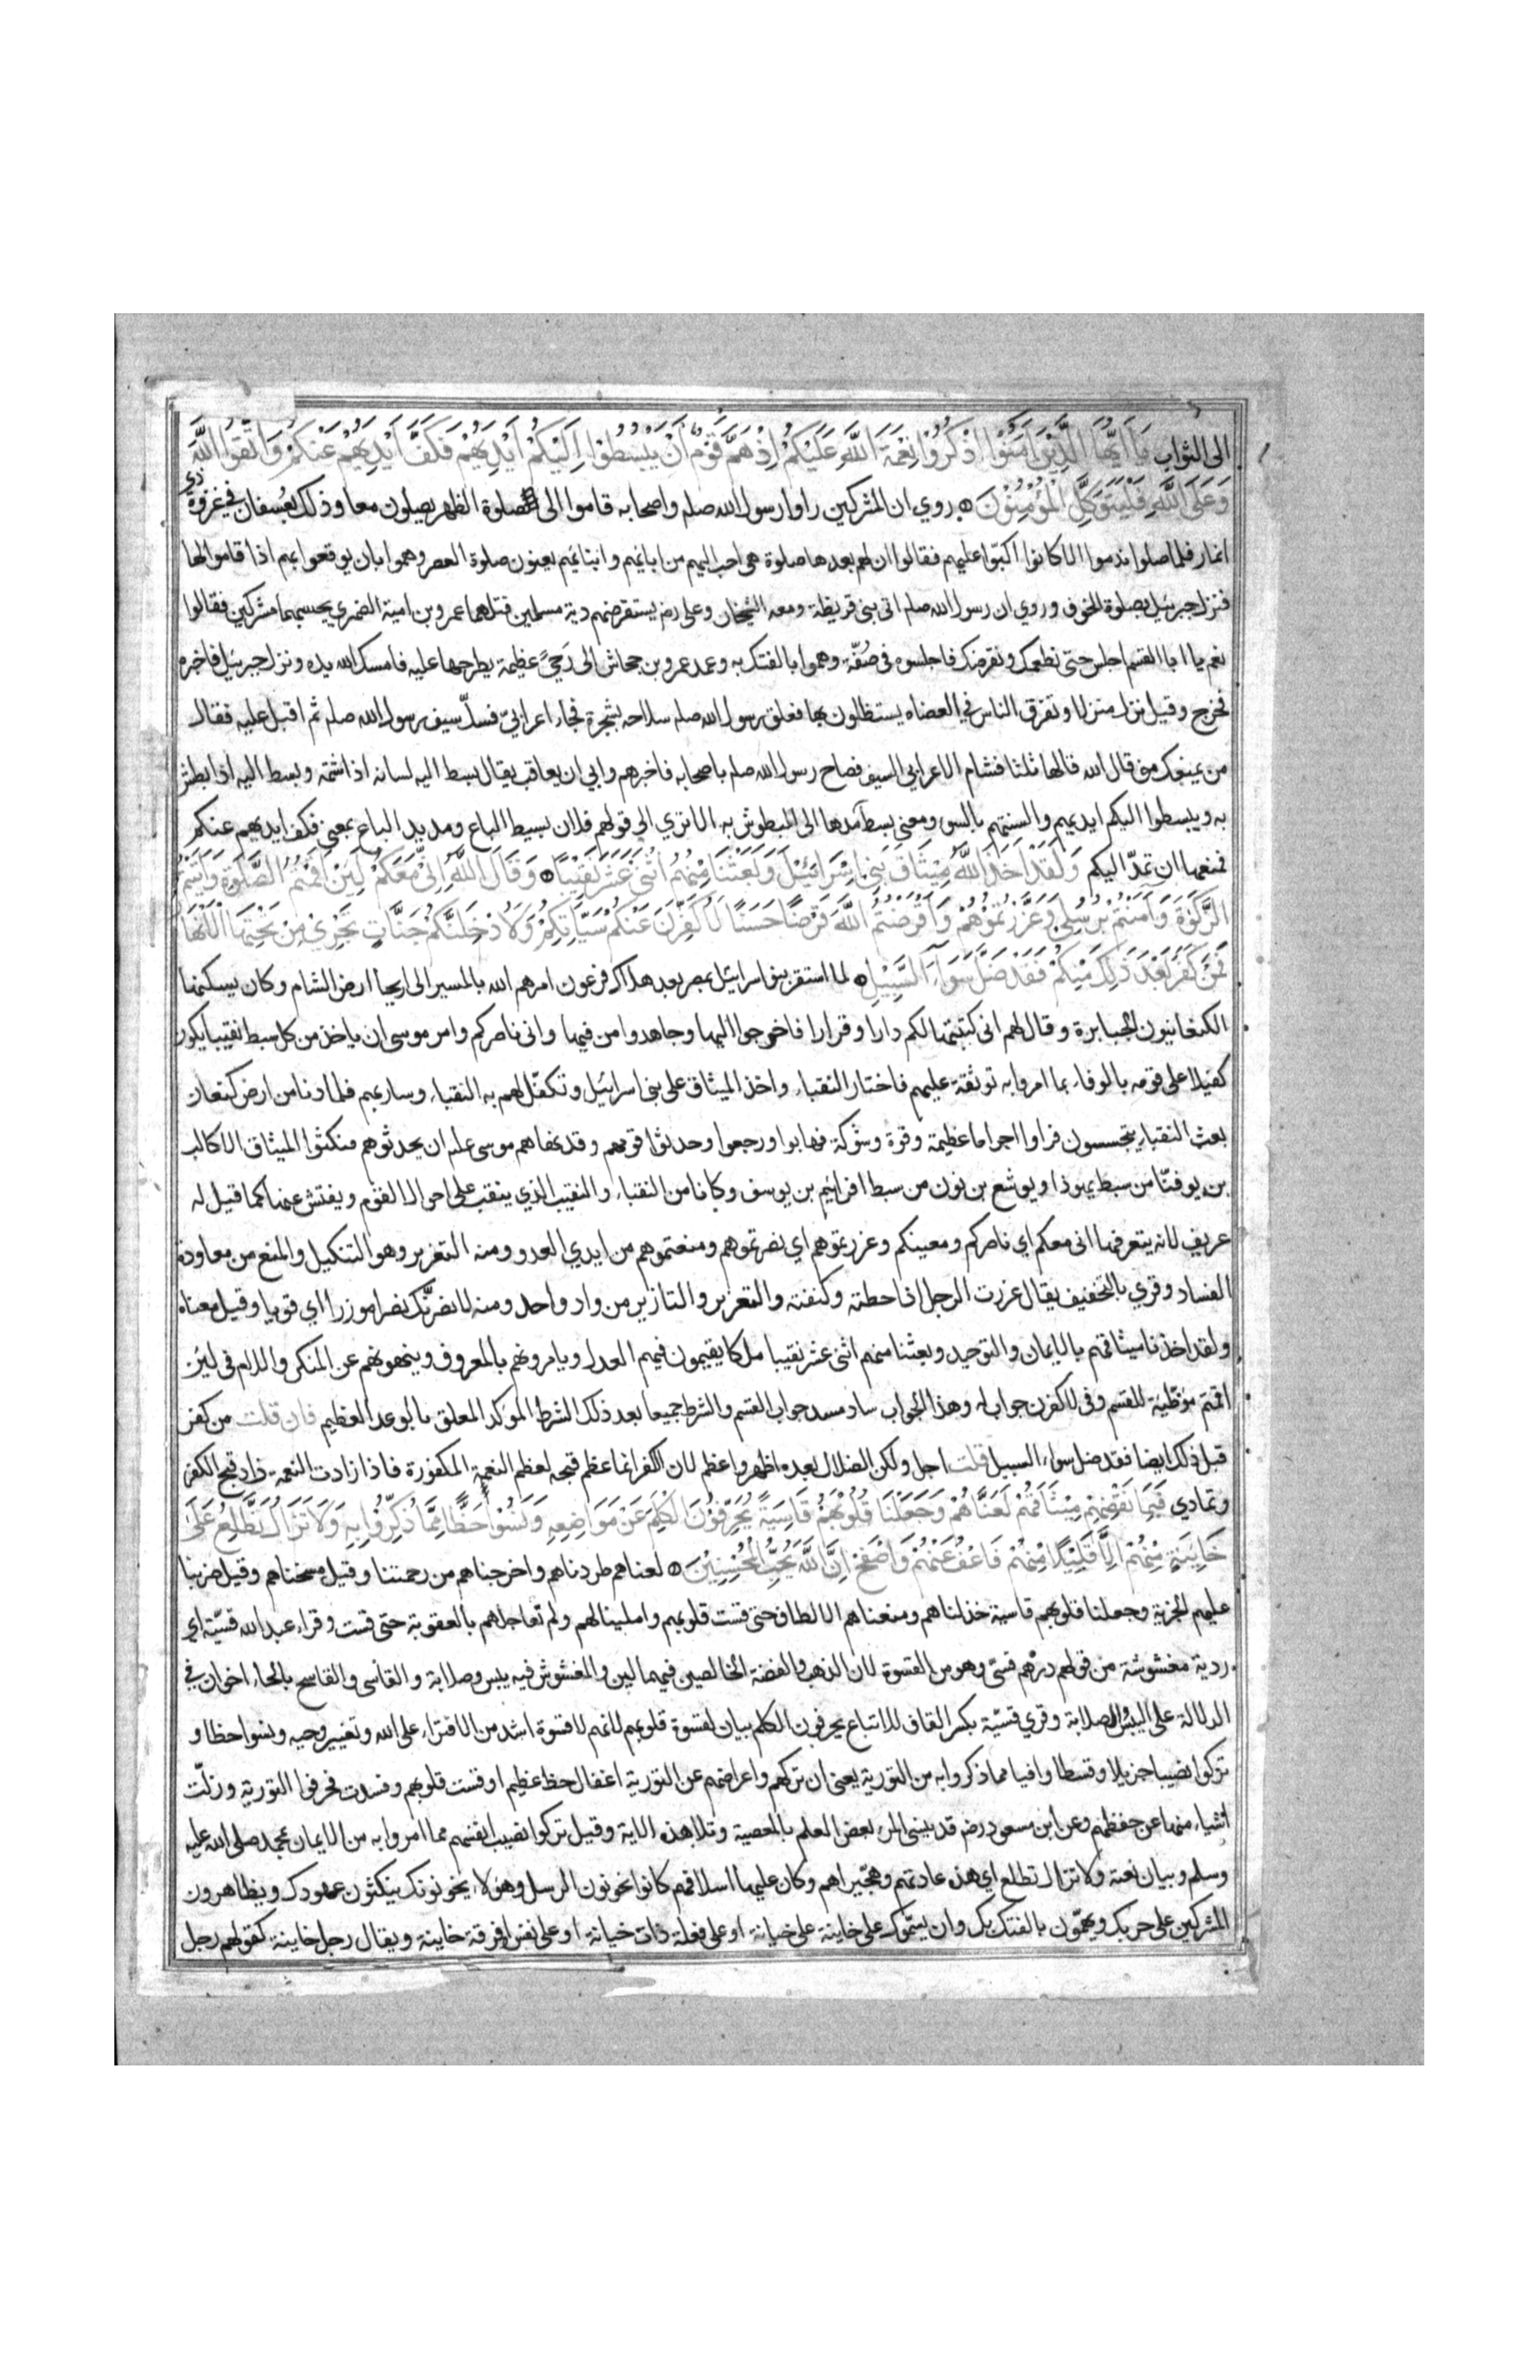 الى الثواب يَا اَيُّهَا الَّذِيْنَ اٰمَنُوْا اذْكُرُوْا نِعْمَةَ اللّٰهِ عَلَيْكُمْ اِذْ هَمَّ قَوْمٌ اَنْ يَبْسُطُوْا اِلَيْكُمْ اَيْدِيَهُمْ فَكَفَّ اَيْدِيَهُمْ عَنْكُمْ وَاتَّقُوا اللّٰهَ
وَعَلَى اللّٰهِ فَلْيَتَوَكَّلِ الْمُؤْمِنُوْنَ روي ان المشركين راوا رسول الله صلم واصحابه قاموا الى صلوة الظهر يصلون معا وذلك بعُسفان في غزوة ذي
انمار فلما صلوا ندموا الا كانوا اكبّوا عليهم فقالوا ان لهم بعدها صلوة هي احب اليهم من ابائهم وابنائهم يعنون صلوة العصر وهموا بان يوقعوا بهم اذا قاموا لها
فنزل جبرئيل بصلوة الخوف وروي ان رسول الله صلم اتى بني قريظة ومعه الشيخان وعلى رضم يستقرضهم دية مسلمين قتلهما عمرو بن امية الضمري يحسبهما مشركين فقالوا
نعم يا ابا القسم اجلس حتى نطعمك ونقرضك فاجلسوه في صُفّة وهموا بالفتك به وعمد عمرو بن جحاش الى رَحىً عظيمة يطرحها عليه فامسك الله يده ونزل جبرئيل فاخبره
فخرج وقيل نزل منزلا وتفرق الناس في العضاه يستظلون بها فعلق رسول الله صلم سلاحه بشجرة فجاء اعرابيّ فسلّ سيف رسول الله صلم ثم اقبل عليه فقال
من يمنعك مني قال الله قالها ثلثا فشام الاعرابي السيف فصاح رسول الله صلم باصحابه فاخبرهم وابي ان يعاقب يقال بسط اليه لسانه اذا شتمه وبسط اليه اذا بطش
به ويبسطوا اليكم ايديهم والسنتهم بالسوء ومعنى بسط مدها الى المبطوش به الا تري الى قولهم فلان بسيط الباع ومديد الباع بمعنى فكف ايديهم عنكم
فمنعها ان تمدّ اليكم وَلَقَدْ اَخَذَ اللّٰهُ مِيْثَاقَ بَنِى اِسْرَائِيْلَ وَبَعَثْنَا مِنْهُمُ اثْنَىْ عَشَرَ نَقِيْبًا وَقَالَ اللّٰهُ اِنِّى مَعَكُمْ لَئِنْ اَقَمْتُمُ الصَّلٰوةَ وَاٰتَيْتُمُ
الزَّكٰوةَ وَاٰمَنْتُمْ بِرُسُلِى وَعَزَّرْتُمُوْهُمْ وَاَقْرَضْتُمُ اللّٰهَ قَرْضًا حَسَنًا لَاُكَفِّرَنَّ عَنْكُمْ سَيِّاٰتِكُمْ وَلَاُدْخِلَنَّكُمْ جَنَّاتٍ تَجْرِى مِنْ تَحْتِهَا الْاَنْهَارُ
فَمَنْ كَفَرَ بَعْدَ ذٰلِكَ مِنْكُمْ فَقَدْ ضَلَّ سَوَاءَ السَّبِيْلِ لما استقر بنو اسرائيل بمصر بعد هلاك فرعون امرهم الله بالمسير الى اريحا ارض الشام وكان يسكنها
الكنعانيون الجبابرة وقال لهم اني كتبتها لكم دارا وقرارا فاخرجوا اليها وجاهدوا من فيها واني ناصركم وامر موسى ان ياخذ من كل سبط نقيبا يكون
كفيلا على قومه بالوفاء بما امروا به توثقة عليهم فاختار النقباء واخذ الميثاق على بني اسرائيل وتكفّل لهم به النقباء وسار بهم فلما دنا من ارض كنعان
بعث النقباء يتجسسون فراوا اجراما عظيمة وقوة وشوكة فهابوا ورجعوا وحدثوا قومهم وقد نهاهم موسى علم ان يحدثوهم فنكثوا الميثاق الا كالب
بن يوفنّا من سبط يهوذا ويوشع بن نون من سبط افرائيم بن يوسف وكانا من النقباء والنقيب الذي ينقب على احوال القوم ويفتش عنها كما قيل له
عريف لانه يتعرفها اني معكم اي ناصركم ومعينكم وعزرتموهم اي نصرتموهم ومنعتموهم من ايدي العدو ومنه التعزير وهو التنكيل والمنع من معاودة
الفساد وقري بالتخفيف يقال عزرت الرجل اذا حطته وكنفته والتعزير والتازير من واد واحد ومنه لانصرنّك نصرا موزرا اي قويا وقيل معناه
ولقد اخذنا ميثاقهم بالايمان والتوحيد وبعثنا منهم اثنى عشر نقيبا ملكا يقيمون فيهم العدل ويامرونهم بالمعروف وينهونهم عن المنكر واللام في لئن
اقمتم موطّية للقسم وفي لاكفرن جواب له وهذا الجواب ساد مسد جواب القسم والشرط جميعا بعد ذلك الشرط الموكد المعلق بالوعد العظيم فان قلت من كفر
قبل ذلك ايضا فقد ضل سواء السبيل قلت اجل ولكن الضلال بعده اظهر واعظم لان الكفر انما عظم قبحه لعظم النعمة المكفورة فاذا زادت النعمة زاد قبح الكفر
وتمادي فَبِمَا نَقْضِهِمْ مِيْثَاقَهُمْ لَعَنَّاهُمْ وَجَعَلْنَا قُلُوْبَهُمْ قَاسِيَةً يُحَرِّفُوْنَ الْكَلِمَ عَنْ مَوَاضِعِهِ وَنَسُوْا حَظًّا مِمَّا ذُكِّرُوا بِهِ وَلَا تَزَالُ تَطَّلِعُ عَلٰى
خَايِنَةٍ مِنْهُمْ اِلَّا قَلِيْلًا مِنْهُمْ فَاعْفُ عَنْهُمْ وَاصْفَحْ اِنَّ اللّٰهَ يُحِبُّ الْمُحْسِنِيْنَ لعناهم طردناهم واخرجناهم من رحمتنا وقيل مسخناهم وقيل ضربنا
عليهم الجزية وجعلنا قلوبهم قاسية خذلناهم ومنعناهم الالطاف حتى قست قلوبهم واملينا لهم ولم نعاجلهم بالعقوبة حتى قست وقراء عبد الله قسيّة اي
ردية مغشوشة من قولهم درهم قسيّ وهو من القسوة لان الذهب والفضة الخالصين فيهما لين والمغشوش فيه يبس وصلابة والقاسى والقاسح بالحاء اخوان في
الدلالة على اليبس والصلابة وقري قسيّة بكسر القاف للاتباع يحرفون الكلم بيان لقسوة قلوبهم لانهم لا قسوة اشد من الافتراء على الله وتغيير وحيه ونسوا حظا و
تركوا نصيبا جزيلا وقسطا وافيا مما ذكروا به من التورية يعني ان تركهم واعراضهم عن التورية اغفال حظ عظيم او قست قلوبهم وفسدت فحرفوا التورية وزلّت
اشياء منها عن حفظهم وعن ابن مسعود رضه قد ينسى المرء بعض العلم بالمعصية وتلا هذه الاية وقيل تركوا نصيب انفسهم مما امروا به من الايمان بمحمد صلى الله عليه
وسلم وبيان نعته ولا تزال تطلع اي هذه عادتهم وهجّيراهم وكان عليها اسلافهم كانوا يخونون الرسل وهؤلاء يخونونك ينكثون عهودك ويظاهرون
المشركين على حربك ويهمّون بالفتك بك وان يسمّوك على خاينة على خيانة او على فعلة ذات خيانة او على نفس او فرقة خاينة ويقال رجل خاينة كقولهم رجل